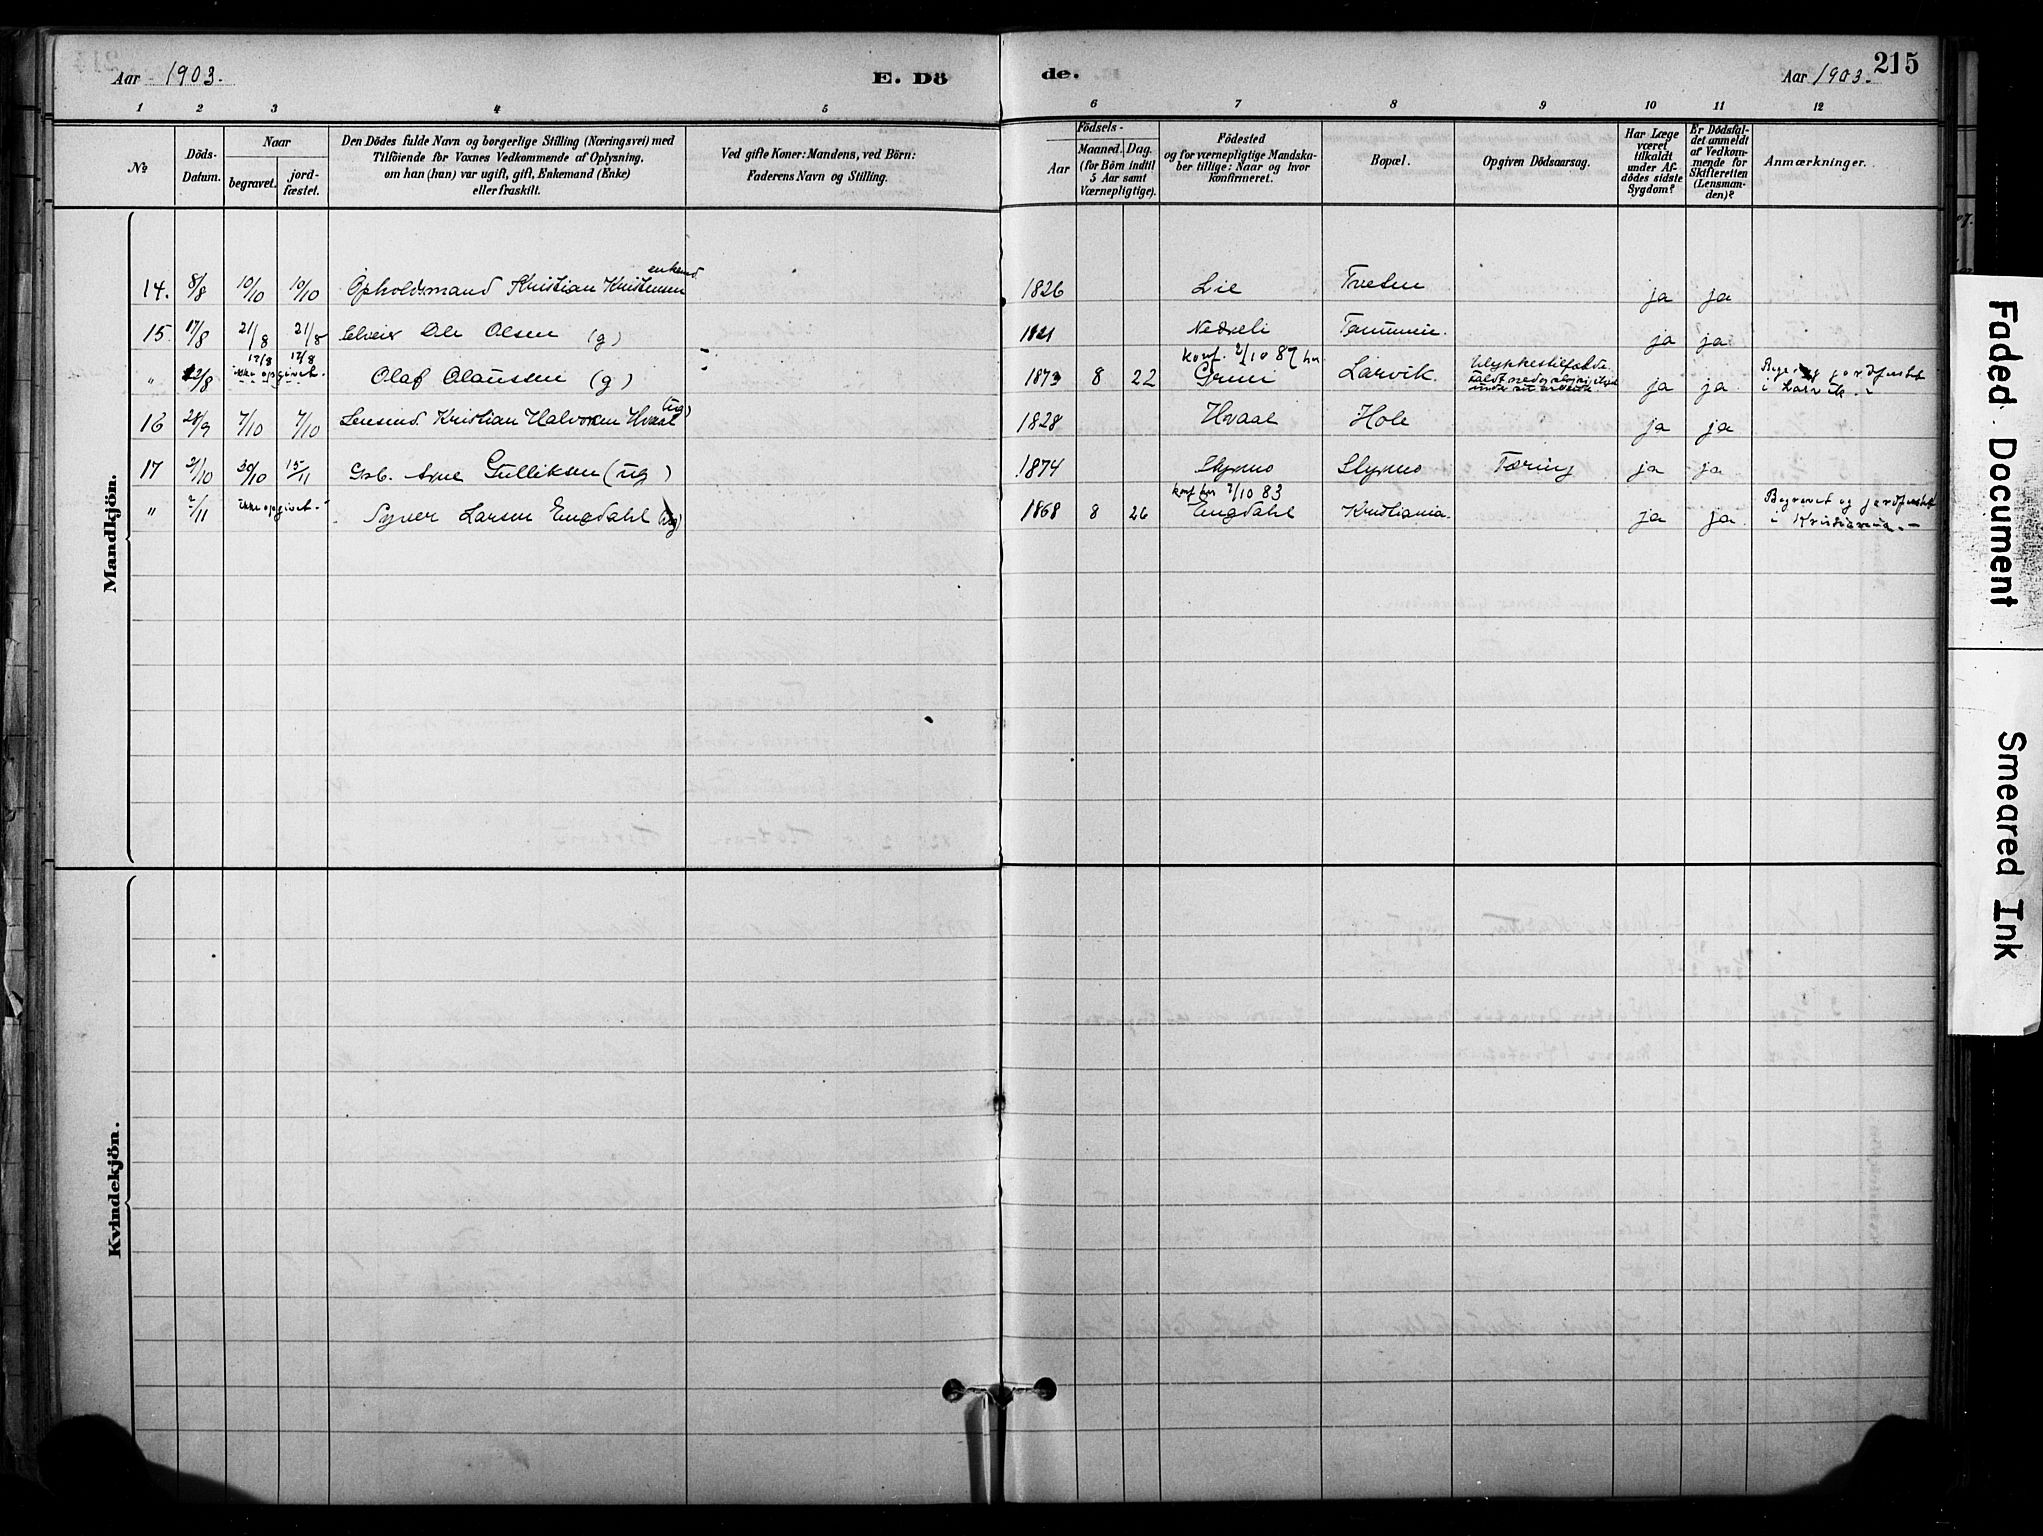 Aar 1903. E. Dö de. Aar 1903. 215
1 2 3 4 5 6 7 8 9 10 11 12
No
Döds-Datum.
Naar
begravet. jord-fæstet.
Den Dödes fulde Navn og borgerlige Stilling (Næringsvei) med
Tilföiende for Voxnes Vedkommende af Oplysning,
om han (hun) var ugift, gift, Enkemand (Enke)
eller fraskilt.
Ved gifte Koner: Mandens, ved Börn:
Faderens Navn og Stilling.
Födsels-
Aar Maaned. Dag.
(for Börn indtil
5 Aar samt
Værnepligtige).
Födested
og for værnepligtige Mandska-
ber tillige: Naar og hvor
konfirmeret.
Bopæl.
Opgiven Dödsaarsag.
Har Læge
været
tilkaldt
under Af-
dödes sidste
Sygdom?
Er Dödsfal-
det anmeldt
af Vedkom-
mende for
Skifteretten
(Lensman-
den)?
Anmærkninger.
Mandkjön.
enkemd.
14. 8/8 10/10 10/10 Opholdsmand Kristian Kristensen 1826 Lie Tveten ja ja
15. 17/8 21/8 21/8 Ole Olsen (g) 1821 Nedreli ja ja
17/8 17/8 konf. 2/10 87 her Ulykkestilfælde
" 12/8 ikke opgivet. Olaf Olausen (g) 1873 8 22 Larvik. ja ja
i Larvik.
(ug)
16 28/9 7/10 7/10 Kristian Halvorsen Hvaal 1828 Hvaal Hole ja ja
17 2/10 30/10 15/11 Gsb. Arne Gulliksen (ug) 1874 Tæring ja ja
konf her 7/10 83 Begravet og jordfæstet
" 2/11 ikke opgivet. Syver Larsen Engdahl (ug) 1868 8 26 Engdahl Kristiania. ja ja. i Kristiania.
Kvindekjön.
Faded Document
Smeared Ink